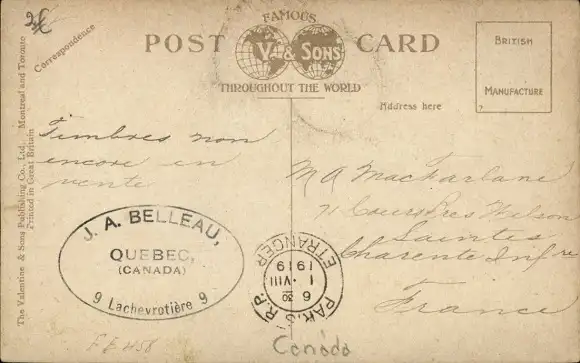 2€
Correspondence
FAMOUS
POST CARD
V & SONS
THROUGHOUT THE WORLD
BRITISH
MANUFACTURE
7
Address here
The Valentine & Sons Publishing Co., Ltd., Montreal and Toronto
Printed in Great Britain
Timbres non
encore en
vente
M A MacFarlane
71 Cours Pres Wilson
Saintes
Charente Infre
France
J. A. BELLEAU,
QUEBEC,
(CANADA)
9 Lachevrotière 9
PARIS R.P.
6 30
1 · VIII
1919
ETRANGER
Canada